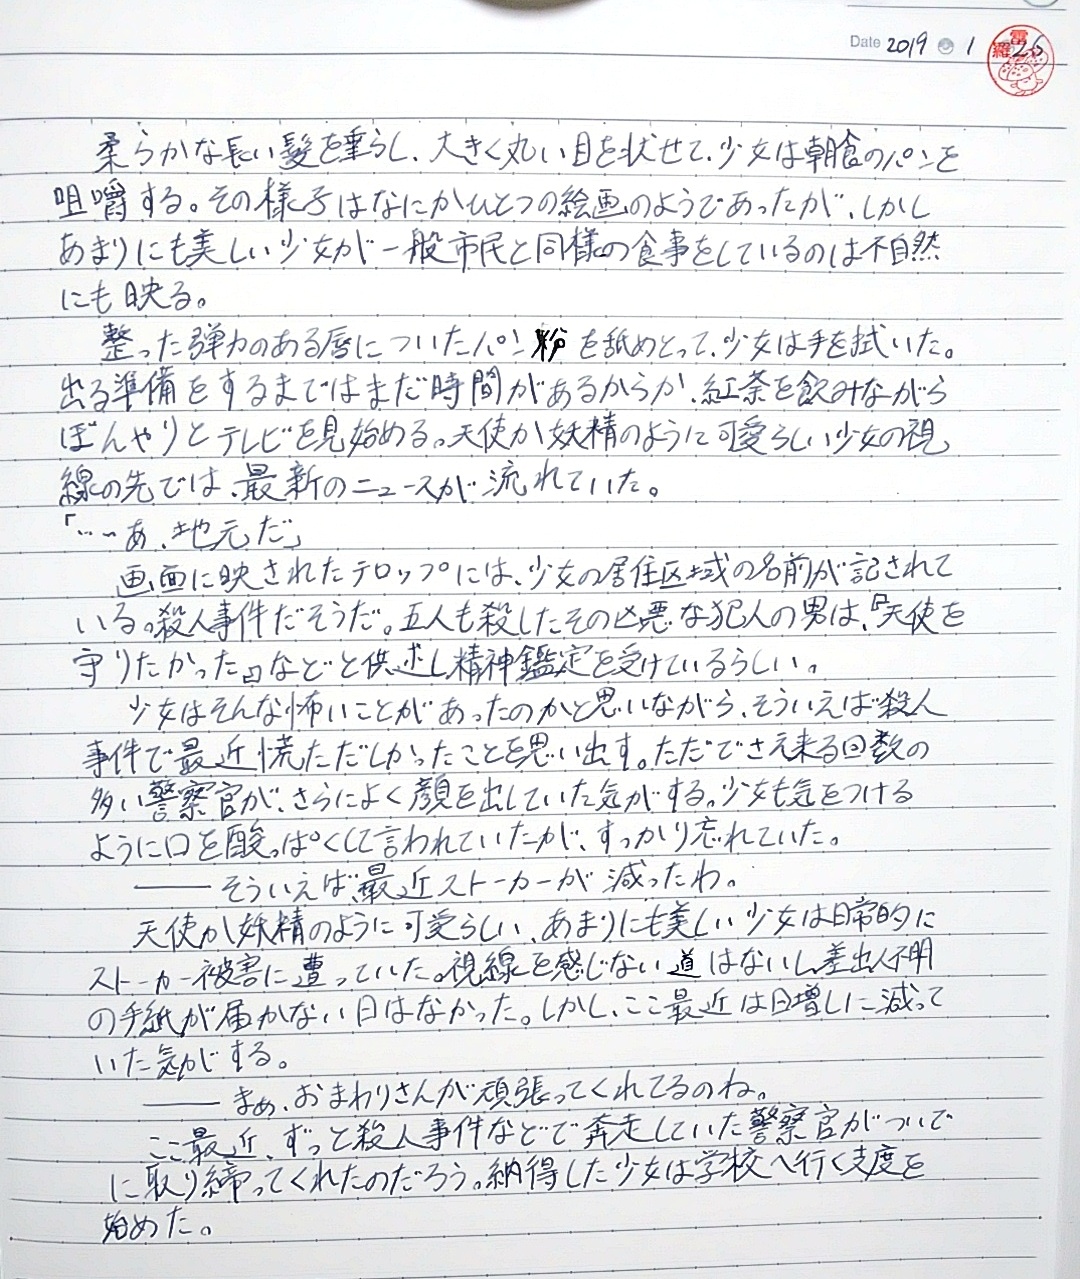 Date 2019 1 26
雷
羅
柔らかな長い髪を垂らし、大きく丸い目を伏せて、少女は朝食のパンを
咀嚼する。その様子はなにかひとつの絵画のようであったが、しかし
あまりにも美しい少女が一般市民と同様の食事をしているのは不自然
にも映る。
整った弾力のある唇についたパン粉を舐めとって、少女は手を拭いた。
出る準備をするまではまだ時間があるからか、紅茶を飲みながら
ぼんやりとテレビを見始める。天使か妖精のように可愛らしい少女の視
線の先では、最新のニュースが流れていた。
「……あ、地元だ」
画面に映されたテロップには、少女の居住区域の名前が記されて
いる。殺人事件だそうだ。五人も殺したその凶悪な犯人の男は、『天使を
守りたかった』などと供述し精神鑑定を受けているらしい。
少女はそんな怖いことがあったのかと思いながら、そういえば殺人
事件で最近慌ただしかったことを思い出す。ただでさえ来る回数の
多い警察官が、さらによく顔を出していた気がする。少女も気をつける
ように口を酸っぱくして言われていたが、すっかり忘れていた。
――そういえば、最近ストーカーが減ったわ。
天使か妖精のように可愛らしい、あまりにも美しい少女は日常的に
ストーカー被害に遭っていた。視線を感じない道はないし、差出人不明
の手紙が届かない日はなかった。しかし、ここ最近は日増しに減って
いた気がする。
――まぁ、おまわりさんが頑張ってくれてるのね。
ここ最近、ずっと殺人事件などで奔走していた警察官がついで
に取り締ってくれたのだろう。納得した少女は学校へ行く支度を
始めた。